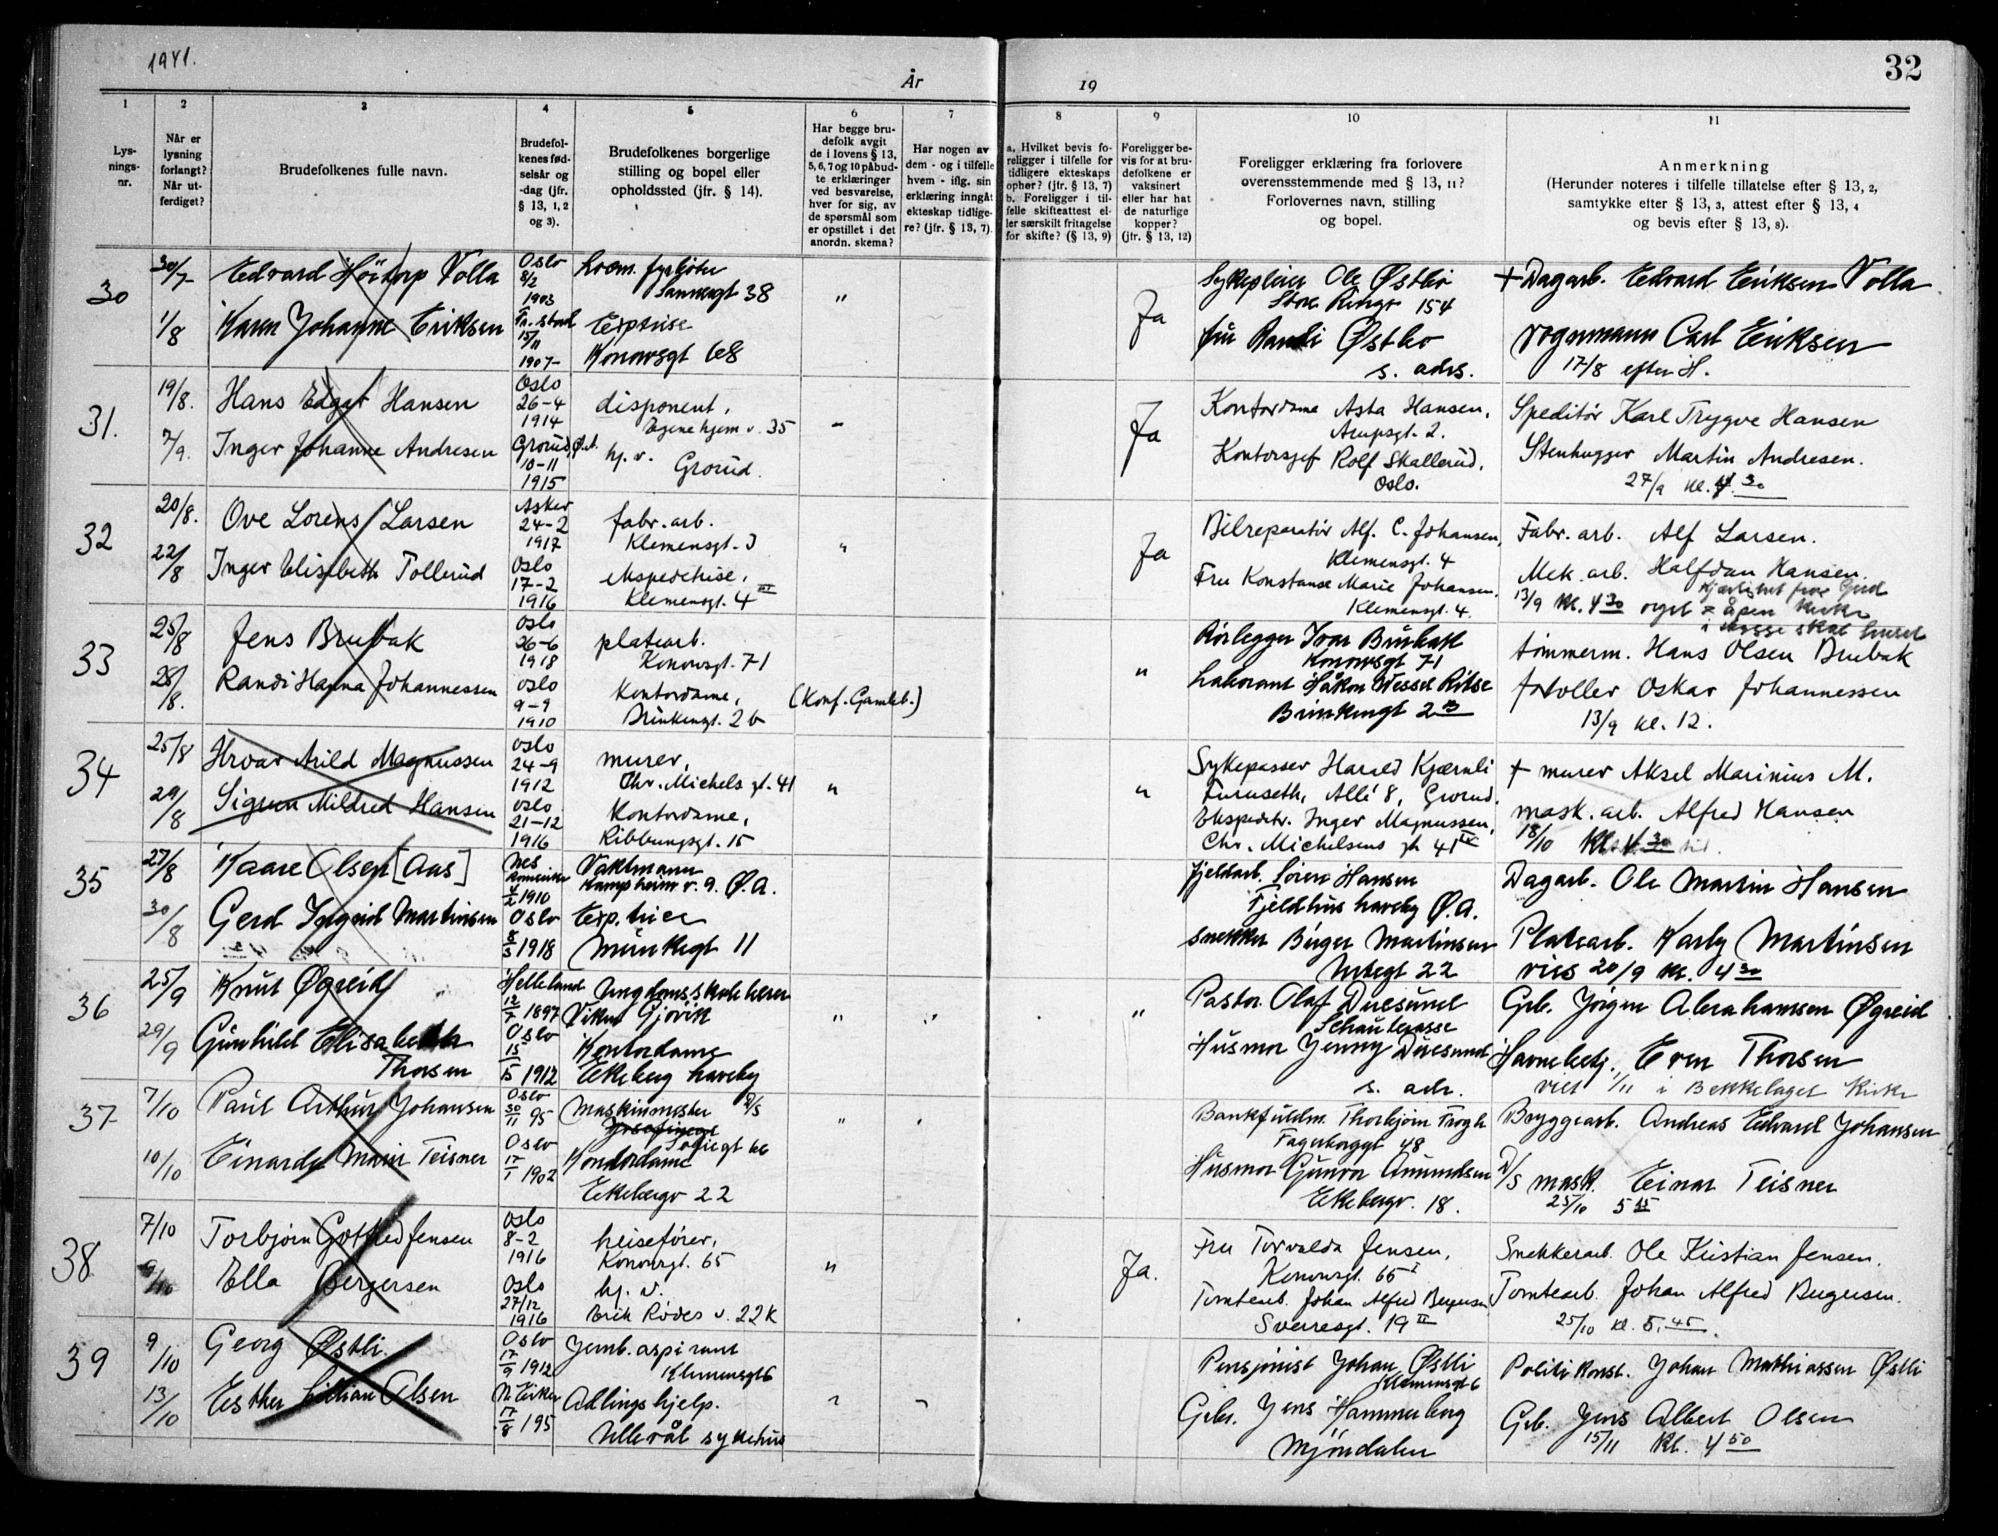 1941.
År
19
32
1
2
3
4
5
6
7
8
9
10
11
Lysningsnr.
Når er lysning forlangt? Når utferdiget?
Brudefolkenes fulle navn.
Brudefolkenes fødselsår og -dag (jfr. § 13, 1, 2 og 3).
Brudefolkenes borgerlige stilling og bopel eller opholdssted (jfr. § 14).
Har begge brudefolk avgit de i lovens § 13, 5, 6, 7 og 10 påbudte erklæringer ved besvarelse, hver for sig, av de spørsmål som er opstillet i det anordn. skema?
Har nogen av dem - og i tilfelle hvem - iflg. sin erklæring inngåt ekteskap tidligere? (jfr. § 13, 7).
a. Hvilket bevis foreligger i tilfelle for tidligere ekteskaps opher? (jfr. § 13, 7) b. Foreligger i tilfelle skifteattest eller særskilt fritagelse for skifte? (§ 13, 9)
Foreligger bevis for at brudefolkene er vaksinert eller har hat de naturlige kopper? (jfr. § 13, 12)
Foreligger erklæring fra forlovere overensstemmende med § 13, 11? Forlovernes navn, stilling og bopel.
Anmerkning (Herunder noteres i tilfelle tillatelse efter § 13, 2, samtykke efter § 13, 3, attest efter § 13, 4 og bevis efter § 13, 8).
30
30/7
Edvard Høitorp Volla
Oslo 8/2 1903
Locm. fyrbøter
Sannergt 38
"
Ja
Sykepleier Ole Østbo
Store Ringv 154
+ Dagarb. Edvard Eriksen Volla
1/8
Karen Johanne Eriksen
Fr.stad 15/11 1907
Exptrise
Konowsgt 68
fru Randi Østbo
s. adrs.
Vognmann Carl Eriksen
17/8 efter H.
31.
19/8.
Hans Edgar Hansen
Oslo 26-4 1914
disponent,
Egne hjem v. 35
Ja
Kontordame Asta Hansen,
Arupsgt. 2.
Speditør Karl Trygve Hansen
7/9.
Inger Johanne Andresen
Grorud, Ø.A. 10-11 1915
hj. v.
Grorud.
Kontorsjef Rolf Skallerud,
Oslo.
Stenhugger Martin Andresen.
27/9 kl. 4.30
32
20/8.
Ove Lorens Larsen
Asker 24-2 1917
fabr. arb.
Klemensgt. 3
"
Ja
Bilreparatør Alf. C. Johansen,
Klemensgt. 4
Fabr. arb. Alf Larsen.
22/8
Inger Elisebeth Tollerud
Oslo 17-2 1916
ekspeditrise,
Klemensgt. 4 III
Fru Konstanse Marie Johansen,
Klemensgt. 4.
Mek. arb. Halfdan Hansen.
Kjærlihet fra Gud
13/9 kl. 4 30 orgel = åpen kirke
33
25/8
Jens Brubak
Oslo 26-6 1918
platearb.
Konowsgt. 71
"
Rørlegger Ivar Brubakk
Konowsgt 71
tømmerm. Hans Olsen Brubak
28/8.
Randi Hanna Johannessen
Oslo 9-9 1910
Kontordame,
Brinkengt. 2b
(Konf. Gamleb.)
Laborant Håkon Wessel Ritse
Brinkengt 2 B
Oskar Johannessen
13/9 kl. 12.
34
25/8
Hroar Arild Magnussen
Oslo 24-9 1912
murer,
Chr. Michels gt. 41
"
"
Sykepasser Harald Kjærnli
Furuseth, Allé 8, Grorud.
+ murer Aksel Marinius M.
29/8
Sigrun Mildred Hansen
Oslo 21-12 1916
Kontordame,
Ribbungsgt. 15
Ekspeditr. Inger Magnussen,
Chr. Michelsens gt 41 IV
mask. arb. Alfred Hansen
18/10 kl. 4 30
35
27/8
Kaare Olsen [Aas]
Nes Romerike 4/2 1910
Vaktmann
Kampheim v. 9. Ø.A.
Fjeldarb. Søren Hansen
Fjeldhus haveby Ø.A.
Dagarb. Ole Martin Hansen
30/8
Gerd Ingrid Martinsen
Oslo 8/3 1918
Exp.trise
Munkegt 11
Snekker Birger Martinsen
22
Platearb. Karly Martinsen
vies 20/9 kl. 4 30
36
25/9
Knut Øgreid
Helleland 12/7 1897
Ungdomsskolelærer
Viken Gjøvik
"
"
"
Pastor Olaf Duesund
Schaulerasse
Grb. Jørgen Abrahamsen Øgreid
29/9
Gunhild Elisabeth Thorsen
Oslo 15/5 1912
Kontordame
Ekeberg haveby
Husmor Jenny Duesund
s. adr.
Havnebetj. Even Thorsen
viet 1/11 i Bekkelaget kirke
37
7/10
Paul Arthur Johansen
Oslo 30/11 95
Maskinmester D/S
Josefinegt
Sofiegt 66
"
Bankfuldm. Thorbjørn Trogh
Fagerborggt 48
Bryggearb. Andreas Edvard Johansen
10/10
Einardy Marie Teisner
Oslo 17/1 1902
Kontordame
Ekebergv 22
Husmor Gunvor Amundsen
Ekebergv. 18.
D/S mask. Einar Teisner
25/10 5 15
38
7/10
Torbjørn Gotfred Jensen
Oslo 8-2 1916
heisefører,
Konowsgt. 65
"
Ja.
Fru Torvalda Jensen,
Konowsgt. 65 I
Snekkerarb. Ole Kristian Jensen.
9/10
Ella Bergersen
Oslo 27/12 1916
hj. v.
Erik Rødes v. 22K
Tomtearb. Johan Alfred Bergersen
Sverresgt. 19 II
Tomtearb. Johan Alfred Bergersen.
25/10 kl. 5,45.
39
9/10
Georg Østli.
Oslo 17/9 1912
Jernb. aspirant
Klemensgt 6
Pensjonist Johan Østli
Klemensgt 6
Politikonst. Johan Mathiassen Østli
13/10
Esther Lillian Olsen
N. Eiker 17/8 195
Adlingshjelp.
Ullevål sykehus
Grbr. Jens Hammerborg
Mjøndalen
Grb. Jens Albert Olsen
15/11 kl. 4 50